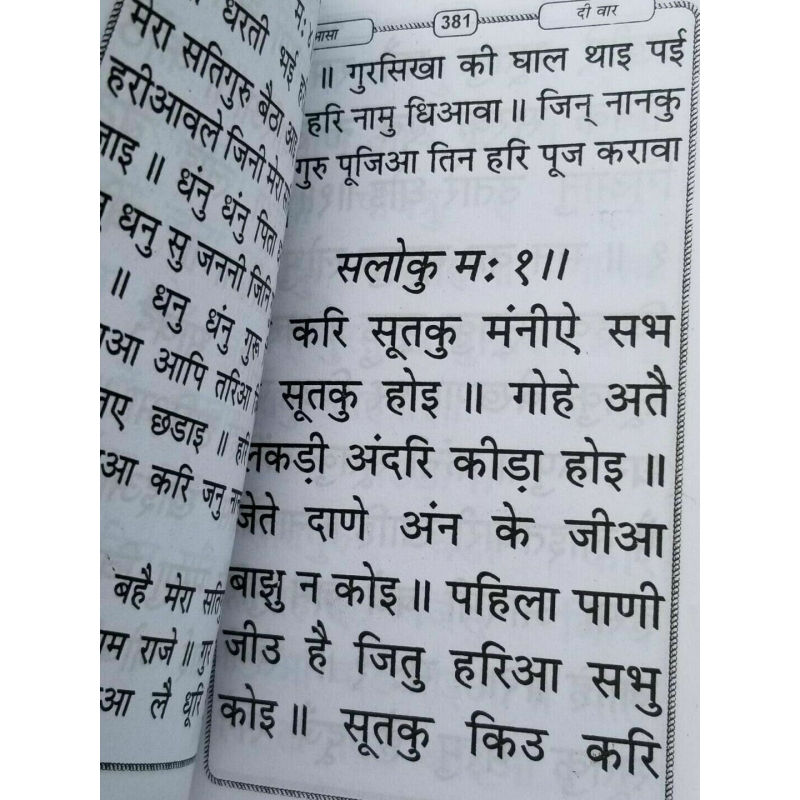 धरती भई
मेरा सतिगुरु बैठा
हरीआवले जिनी मेरा
॥ धंनु धंनु पिता
धनु सु जननी जिनि
॥ धनु धंनु गुरू
आपि तरिआ
छडाइ ॥
करि जनु
बहै मेरा
राजे ॥
लै धूरि
381
दी वार
॥ गुरसिखा की घाल थाइ पई
हरि नामु धिआवा ॥ जिन् नानकु
गुरु पूजिआ तिन हरि पूज करावा
सलोकु म: १॥
करि सूतकु मंनीऐ सभ
सूतकु होइ ॥ गोहे अतै
लकड़ी अंदरि कीड़ा होइ ॥
जेते दाणे अंन के जीआ
बाझु न कोइ ॥ पहिला पाणी
जीउ है जितु हरिआ सभु
कोइ ॥ सूतकु किउ करि